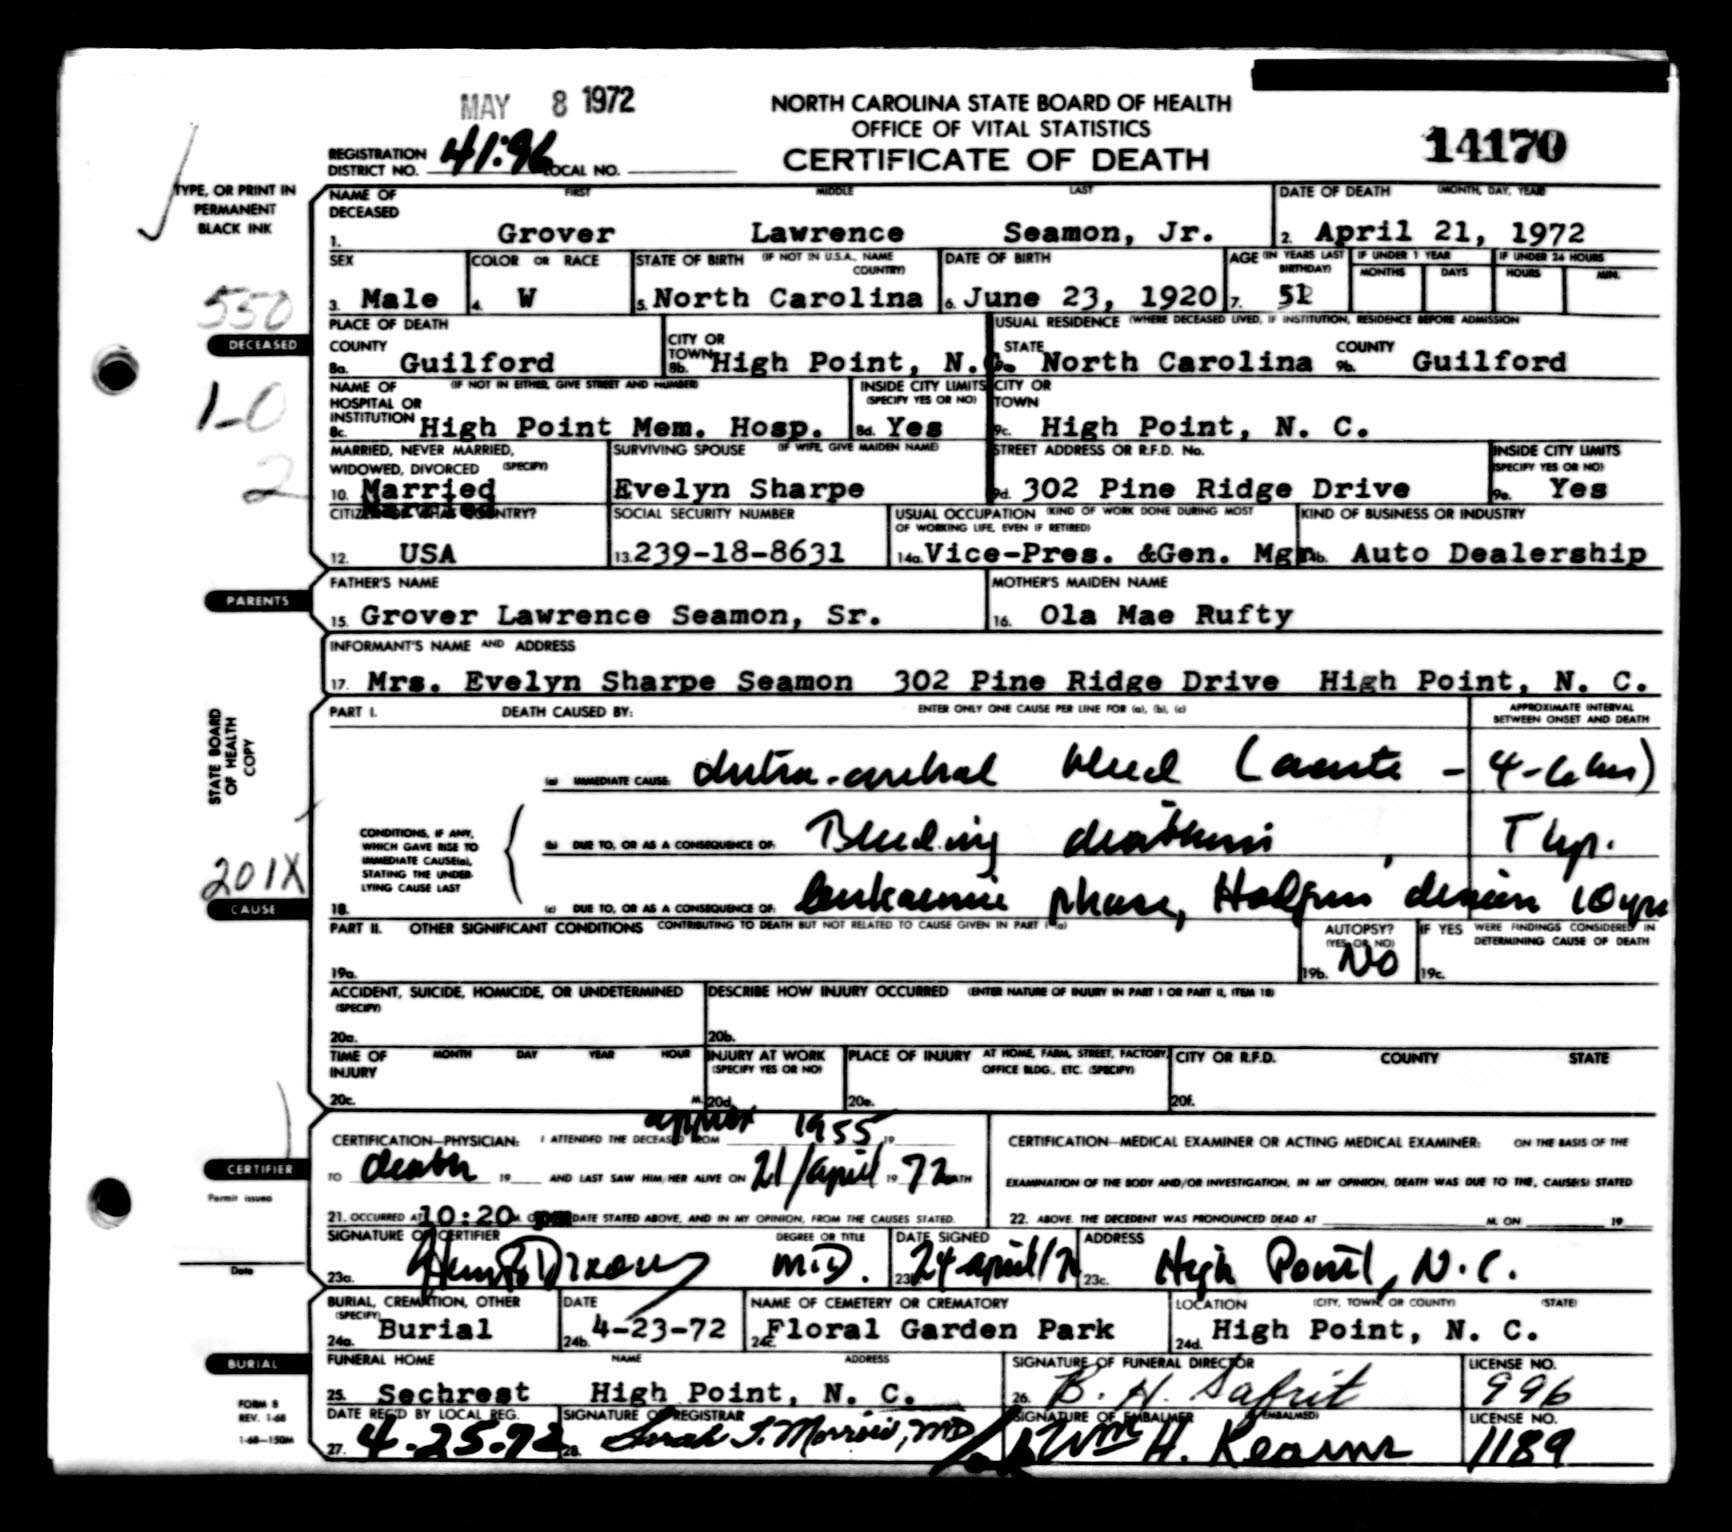 MAY 8 1972
NORTH CAROLINA STATE BOARD OF HEALTH
OFFICE OF VITAL STATISTICS
CERTIFICATE OF DEATH
14170
REGISTRATION DISTRICT NO. 41-96 LOCAL NO.
TYPE, OR PRINT IN
PERMANENT
BLACK INK
NAME OF DECEASED FIRST MIDDLE LAST
1. Grover Lawrence Seamon, Jr.
DATE OF DEATH (MONTH, DAY, YEAR)
2. April 21, 1972
SEX
3. Male
COLOR OR RACE
4. W
STATE OF BIRTH (IF NOT IN U.S.A., NAME COUNTRY)
5. North Carolina
DATE OF BIRTH
6. June 23, 1920
AGE (IN YEARS LAST BIRTHDAY)
7. 51
IF UNDER 1 YEAR
MONTHS DAYS
IF UNDER 24 HOURS
HOURS MIN.
550
DECEASED
1-0
2
PLACE OF DEATH
COUNTY
8a. Guilford
CITY OR TOWN
8b. High Point, N.C.
USUAL RESIDENCE (WHERE DECEASED LIVED, IF INSTITUTION, RESIDENCE BEFORE ADMISSION
STATE
9a. North Carolina
COUNTY
9b. Guilford
NAME OF HOSPITAL OR INSTITUTION (IF NOT IN EITHER, GIVE STREET AND NUMBER)
8c. High Point Mem. Hosp.
INSIDE CITY LIMITS (SPECIFY YES OR NO)
8d. Yes
CITY OR TOWN
9c. High Point, N. C.
MARRIED, NEVER MARRIED, WIDOWED, DIVORCED (SPECIFY)
10. Married
Married
SURVIVING SPOUSE (IF WIFE, GIVE MAIDEN NAME)
Evelyn Sharpe
STREET ADDRESS OR R.F.D. No.
9d. 302 Pine Ridge Drive
INSIDE CITY LIMITS (SPECIFY YES OR NO)
9e. Yes
CITIZEN OF WHAT COUNTRY?
12. USA
SOCIAL SECURITY NUMBER
13. 239-18-8631
USUAL OCCUPATION (KIND OF WORK DONE DURING MOST OF WORKING LIFE, EVEN IF RETIRED)
14a. Vice-Pres. &Gen. Mgr.
KIND OF BUSINESS OR INDUSTRY
14b. Auto Dealership
PARENTS
FATHER'S NAME
15. Grover Lawrence Seamon, Sr.
MOTHER'S MAIDEN NAME
16. Ola Mae Rufty
INFORMANT'S NAME AND ADDRESS
17. Mrs. Evelyn Sharpe Seamon 302 Pine Ridge Drive High Point, N. C.
STATE BOARD
OF HEALTH
COPY
PART I. DEATH CAUSED BY: ENTER ONLY ONE CAUSE PER LINE FOR (a), (b), (c)
APPROXIMATE INTERVAL BETWEEN ONSET AND DEATH
(a) IMMEDIATE CAUSE: Intra-cerebral bleed (acute - 4-6 hrs)
CONDITIONS, IF ANY,
WHICH GAVE RISE TO
IMMEDIATE CAUSE(a),
STATING THE UNDER-
LYING CAUSE LAST
(b) DUE TO, OR AS A CONSEQUENCE OF: Bleeding diathesis
201X
CAUSE
18. (c) DUE TO, OR AS A CONSEQUENCE OF: leukaemic phase, Hodgkins' disease 10 yrs
PART II. OTHER SIGNIFICANT CONDITIONS CONTRIBUTING TO DEATH BUT NOT RELATED TO CAUSE GIVEN IN PART I (a)
19a.
AUTOPSY? (YES OR NO)
19b. No
IF YES WERE FINDINGS CONSIDERED IN DETERMINING CAUSE OF DEATH
19c.
ACCIDENT, SUICIDE, HOMICIDE, OR UNDETERMINED (SPECIFY)
20a.
DESCRIBE HOW INJURY OCCURRED (ENTER NATURE OF INJURY IN PART I OR PART II, ITEM 18)
20b.
TIME OF INJURY MONTH DAY YEAR HOUR
20c. M.
INJURY AT WORK (SPECIFY YES OR NO)
20d.
PLACE OF INJURY AT HOME, FARM, STREET, FACTORY, OFFICE BLDG., ETC. (SPECIFY)
20e.
CITY OR R.F.D. COUNTY STATE
20f.
CERTIFIER
Permit issued
Date
CERTIFICATION—PHYSICIAN: I ATTENDED THE DECEASED FROM approx 1955, 19
TO death 19 AND LAST SAW HIM/HER ALIVE ON 21/April 1972 DEATH
21. OCCURRED AT 10:20 M. pm DATE STATED ABOVE, AND IN MY OPINION, FROM THE CAUSES STATED.
CERTIFICATION—MEDICAL EXAMINER OR ACTING MEDICAL EXAMINER: ON THE BASIS OF THE
EXAMINATION OF THE BODY AND/OR INVESTIGATION, IN MY OPINION, DEATH WAS DUE TO THE, CAUSE(S) STATED
22. ABOVE. THE DECEDENT WAS PRONOUNCED DEAD AT M. ON 19
SIGNATURE OF CERTIFIER
23a.
DEGREE OR TITLE
M.D.
DATE SIGNED
23b. 24 April/72
ADDRESS
23c. High Point, N.C.
BURIAL
BURIAL, CREMATION, OTHER (SPECIFY)
24a. Burial
DATE
24b. 4-23-72
NAME OF CEMETERY OR CREMATORY
24c. Floral Garden Park
LOCATION (CITY, TOWN, OR COUNTY) (STATE)
24d. High Point, N. C.
FUNERAL HOME NAME ADDRESS
25. Sechrest High Point, N. C.
SIGNATURE OF FUNERAL DIRECTOR
26. B. H. Safrit
LICENSE NO.
996
FORM 8
REV. 1-68
1-68—150M
DATE REC'D BY LOCAL REG.
27. 4-25-72
SIGNATURE OF REGISTRAR
28. Sarah T. Morrow, MD
SIGNATURE OF EMBALMER (IF EMBALMED)
Wm H. Kearns
LICENSE NO.
1189